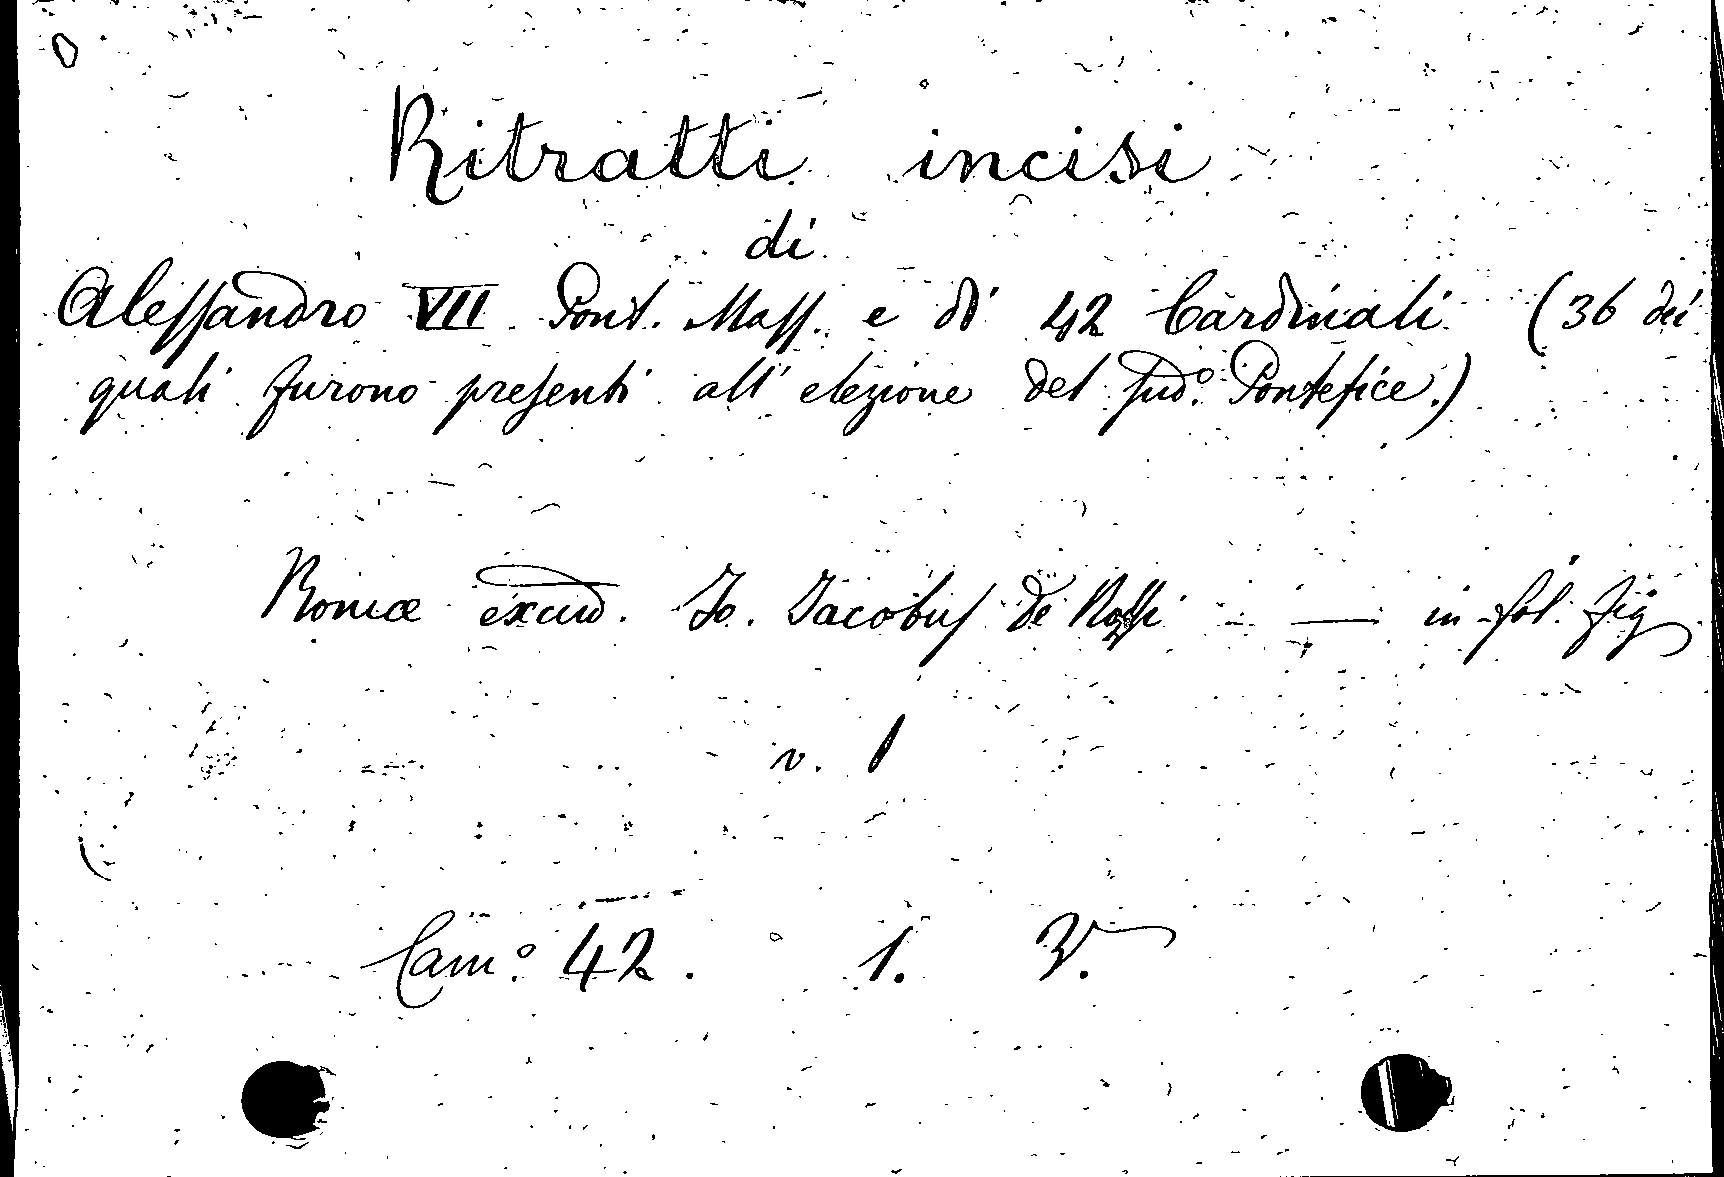 Ritratti incisi
di
Alessandro VII Pont. Mass. e di 42 Cardinali (36 dei
quali furono presenti all'elezione del sudº. Pontefice.)
Romæ excud. Jo. Jacobus de Rossi — in fol. fig
v. 1
Camº. 42. 1. V.